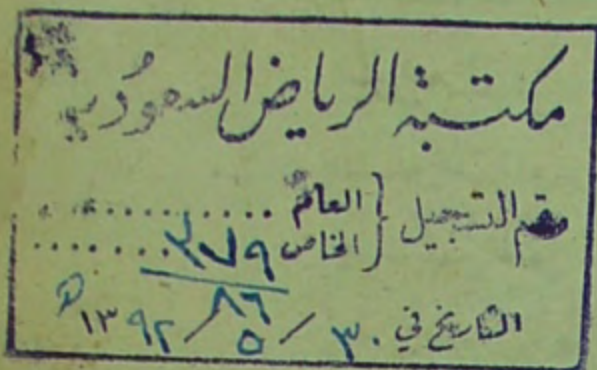 مكتبة الرياض السعودية
رقم التسجيل { العام ............
الخاص ٣٧٩/٨٦ .......
التاريخ في ٣٠ / ٥ / ١٣٩٢ هـ